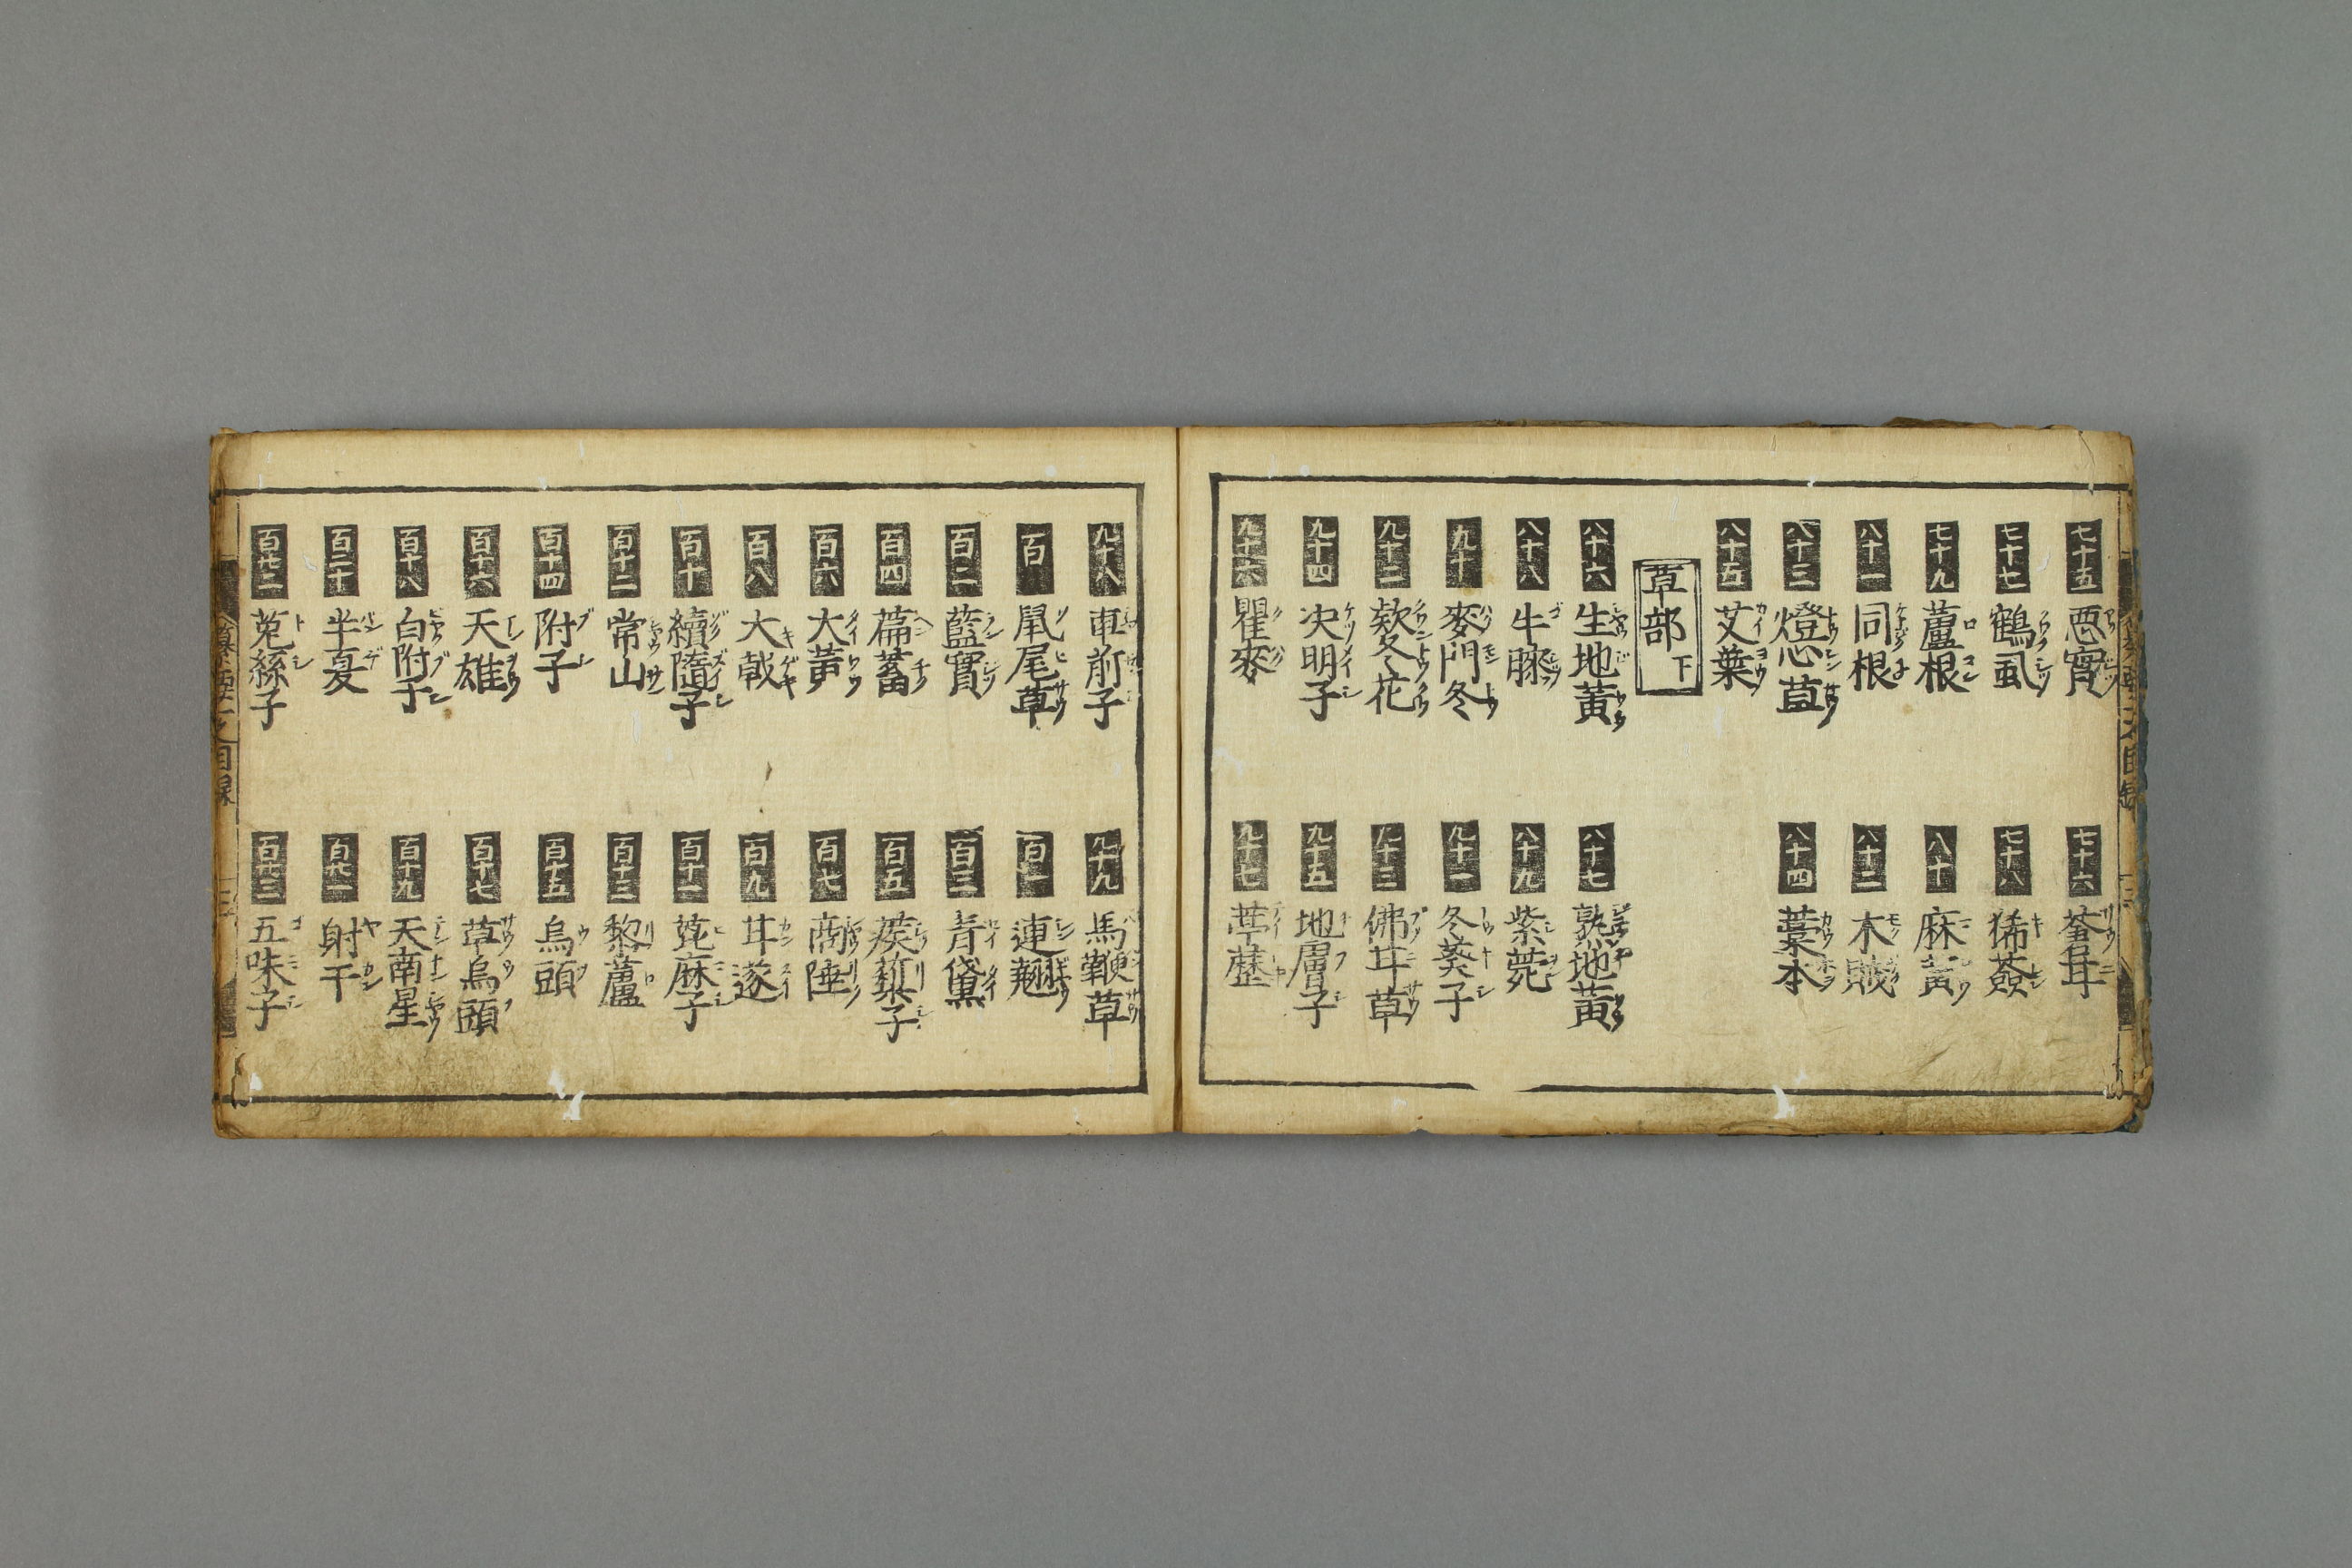 七十五 悪實
七十六 荃耳
七十七 鶴虱
七十八 豨薟
七十九 蘆根
八十 麻黃
八十一 同根
八十二 木賊
八十三 燈心草
八十四 藁本
八十五 艾葉
草部下
八十六 生地黃
八十七 熟地黃
八十八 牛膝
八十九 紫菀
九十 麥門冬
九十一 冬葵子
九十二 欵冬花
九十三 佛耳草
九十四 决明子
九十五 地膚子
九十六 瞿麥
九十七 葶藶
九十八 車前子
九十九 馬鞭草
一百 鼠尾草
百一 連翹
百二 藍實
百三 青黛
百四 萹蓄
百五 蒺蔾子
百六 大黃
百七 商陸
百八 大戟
百九 甘遂
百十 續隨子
百十一 萞麻子
百十二 常山
百十三 藜蘆
百十四 附子
百十五 烏頭
百十六 天雄
百十七 草烏頭
百十八 白附子
百十九 天南星
百二十 半夏
百廿一 射干
百廿二 菟絲子
百廿三 五味子